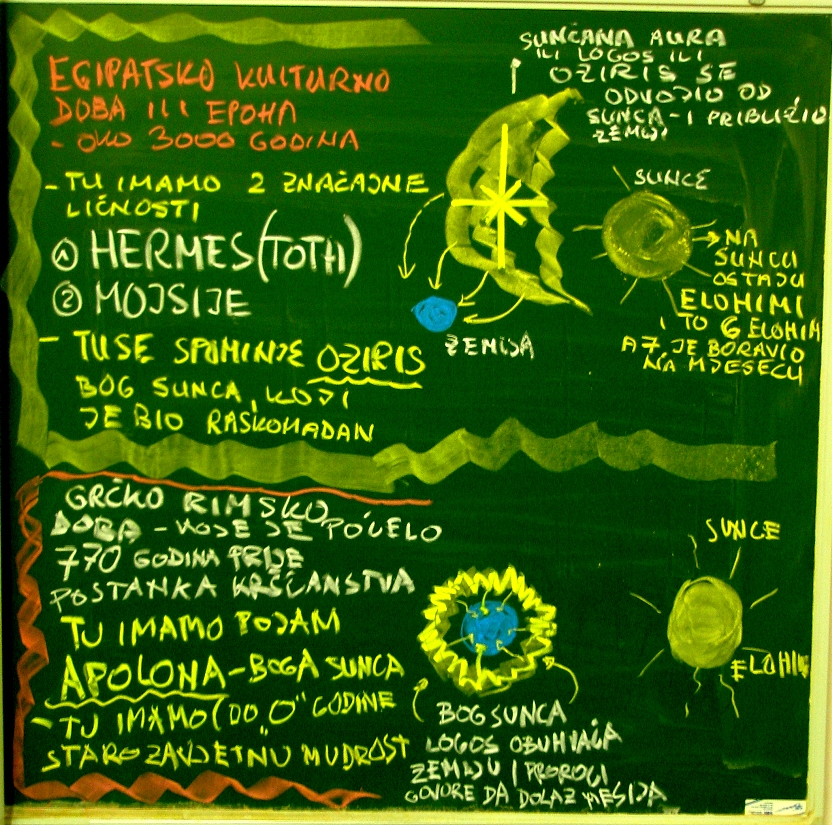 EGIPATSKO KULTURNO
DOBA ILI EPOHA
- OKO 3000 GODINA
- TU IMAMO 2 ZNAČAJNE
LIČNOSTI
① HERMES (TOTH)
② MOJSIJE
- TU SE SPOMINJE OZIRIS
BOG SUNCA, KOJI
JE BIO RASKOMADAN
SUNČANA AURA
ILI LOGOS ILI
OZIRIS SE
ODVOJIO OD
SUNCA - I PRIBLIŽIO
ZEMLJI
SUNCE
NA
SUNCU
OSTAJU
ELOHIMI
I TO 6 ELOHIM
A 7. JE BORAVIO
NA MJESECU
ZEMLJA
GRČKO RIMSKO
DOBA - KOJE JE POČELO
770 GODINA PRIJE
POSTANKA KRŠĆANSTVA
TU IMAMO POJAM
APOLONA - BOGA SUNCA
- TU IMAMO (DO „0" GODINE
STAROZAVJETNU MUDROST
SUNCE
ELOHIM
BOG SUNCA
LOGOS OBUHVAĆA
ZEMLJU I PROROCI
GOVORE DA DOLAZ MESIJA